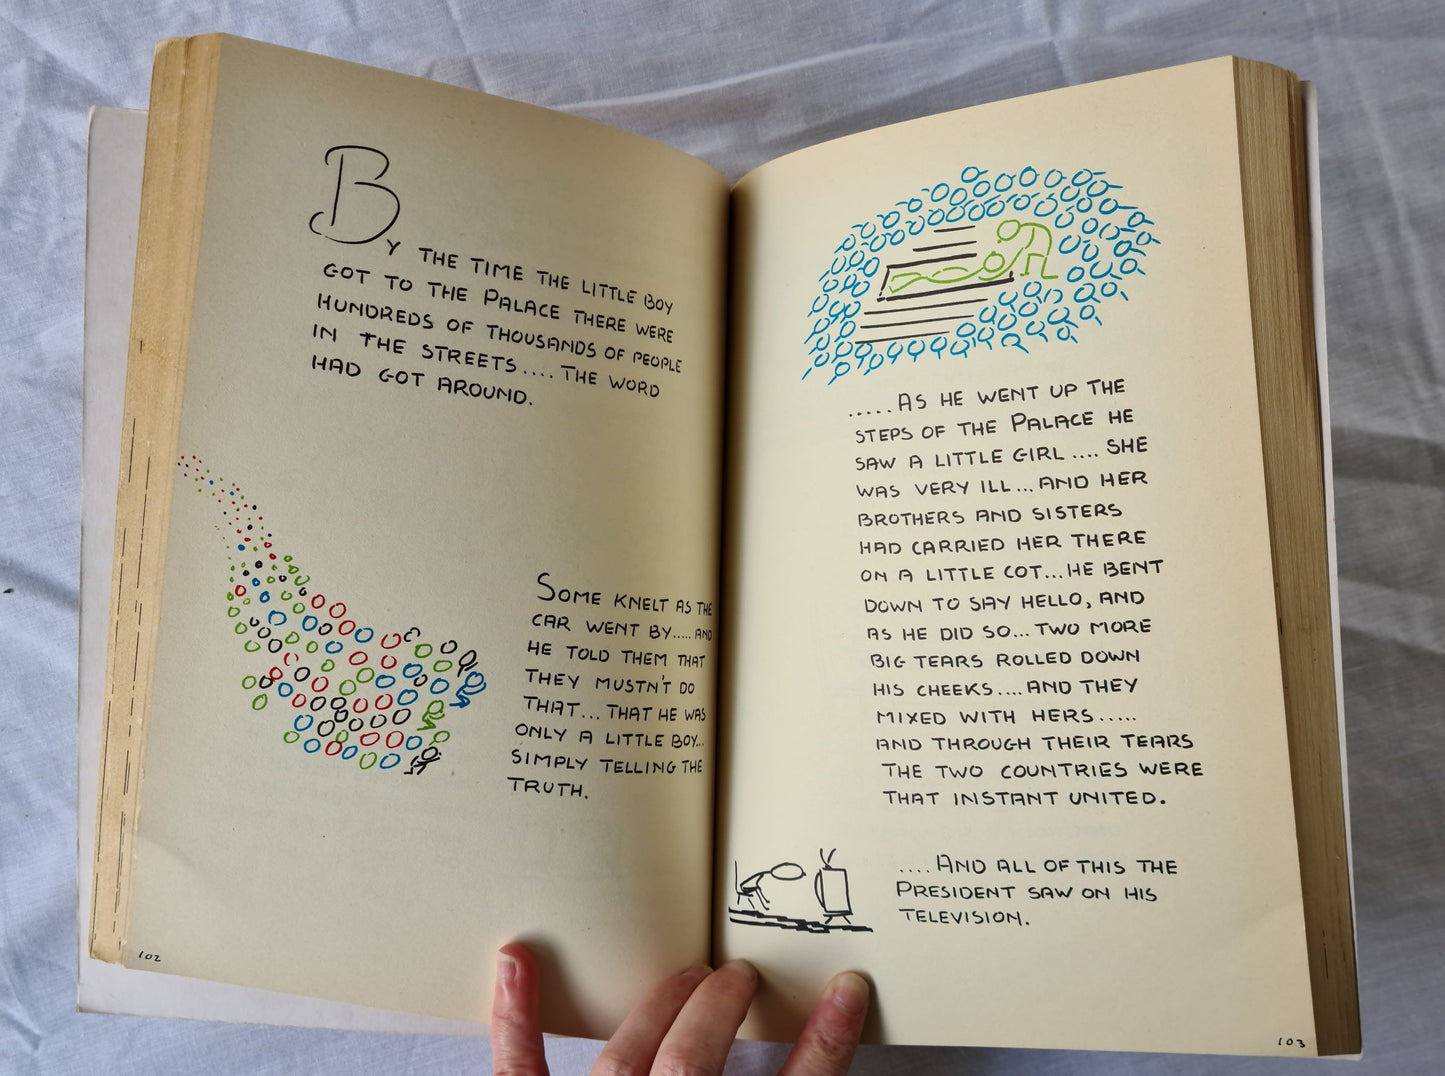 By the time the little boy
got to the Palace there were
hundreds of thousands of people
in the streets.... The word
had got around.
Some knelt as the
car went by..... and
he told them that
they mustn't do
that... that he was
only a little boy...
simply telling the
truth.
102
..... As he went up the
steps of the Palace he
saw a little girl .... she
was very ill... and her
brothers and sisters
had carried her there
on a little cot... he bent
down to say hello, and
as he did so... two more
big tears rolled down
his cheeks.... and they
mixed with hers.....
and through their tears
the two countries were
that instant united.
.... And all of this the
President saw on his
television.
103